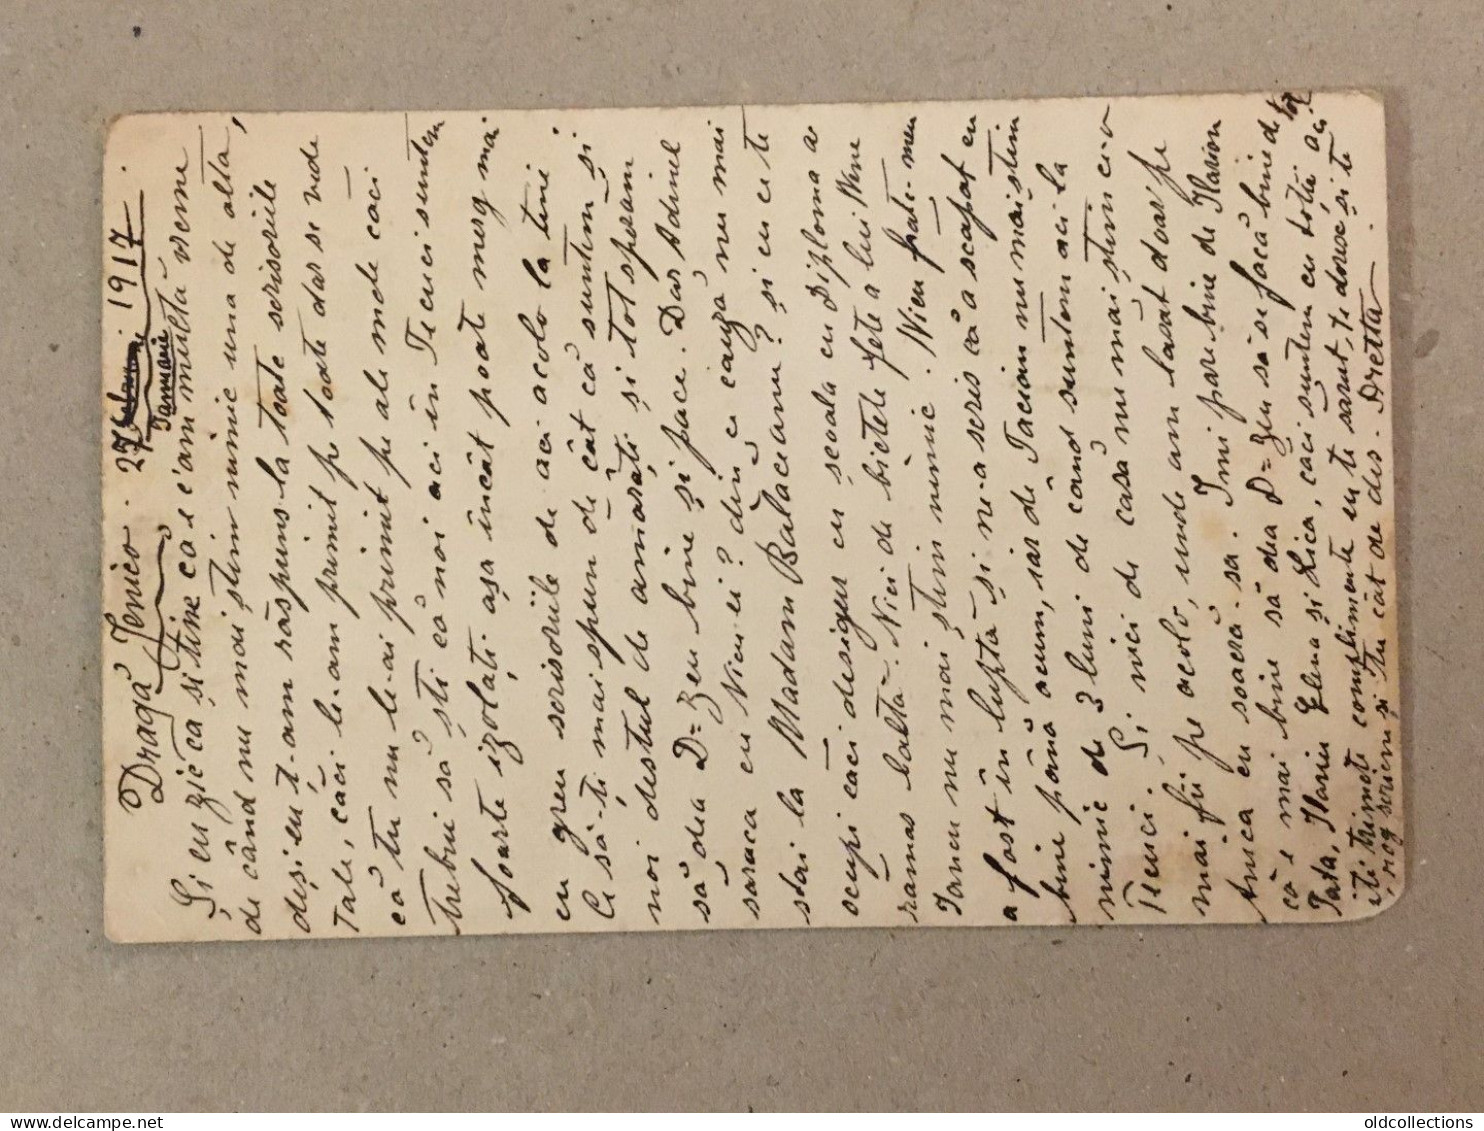 Dragă Jenico. 27 Ianuarie 1917.
Și eu zic ca și tine ca e cam multă vreme
de când nu mai știm nimic una de alta,
deși eu t-am răspuns la toate scrisorile
tale, căci le-am primit pe toate dar se vede
că tu nu le-ai primit pe ale mele căci
trebui să știi că noi aci în Tecuci suntem
foarte izolați așa încât poate merg mai
cu greu scrisorile de aci acolo la tine.
Ce să-ți mai spun de cât că suntem și
noi destul de amarați și tot sperăm
să dea D-zeu bine și pace. Dar Adinel
saraca cu Nicu ei? din ce cauză nu mai
stai la Madam Balaceanu? și cu ce te
ocupi căci desigur cu școala cu Diploma a
ramas baltă. Nici de bietele fete a lui Nene
Iancu nu mai știm nimic. Nicu frate-meu
a fost în luptă și ne-a scris că a scapat cu
bine până acum, iar de Tacian nu mai știm
nimic de 3 luni de când suntem aci la
Tecuci. Și nici de casă nu mai știm ce-o
mai fi pe acolo, unde am lasat doar pe
Anica cu soacră-sa. Imi pare bine de Ilarion
că e mai bine să dea D-zeu să se facă bine de tot
Tata, Ilariu Elena și Lica, căci suntem cu toții aci
iti trimete complimente eu te sarut, te doresc și te
rog scrie-mi și tu cât de des. Aretta.
oldcollections